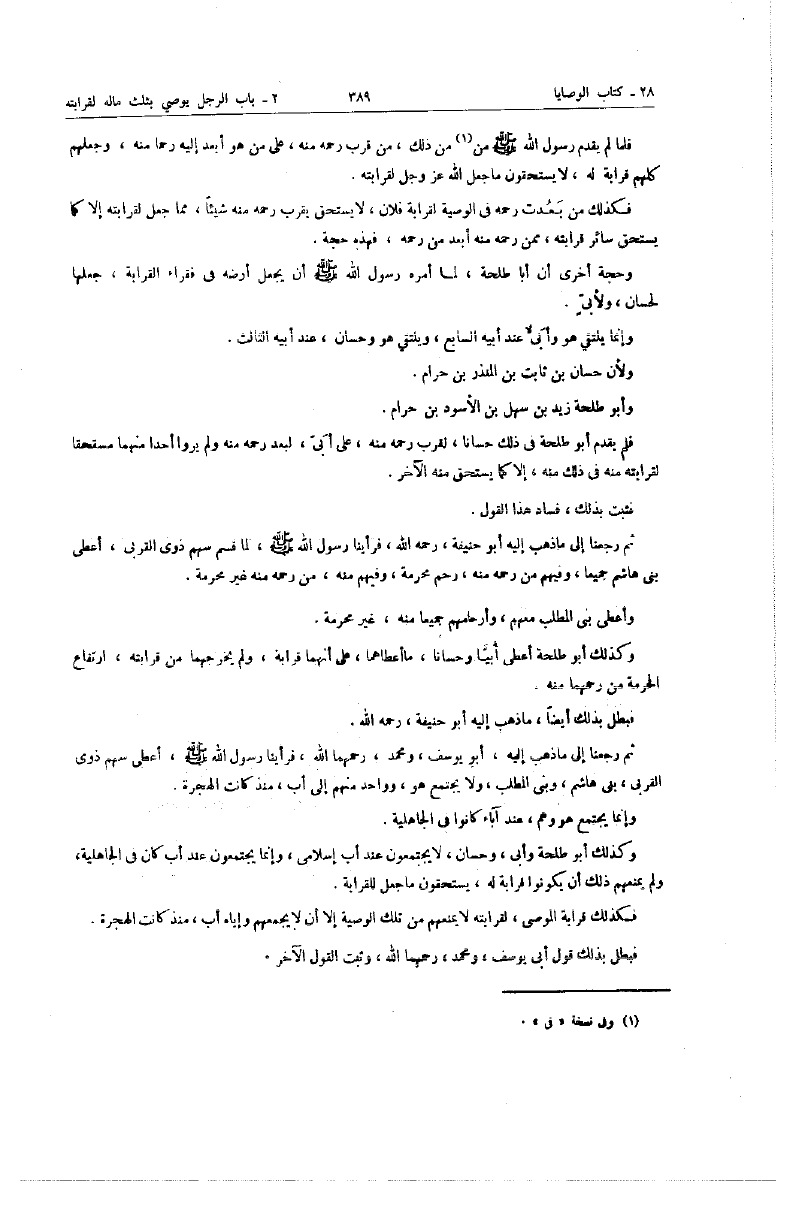 ٢٨ - كتاب الوصايا ٣٨٩ ٢ - باب الرجل يوصي بثلث ماله لقرابته
فلما لم يقدم رسول الله ﷺ من(١) من ذلك ، من قرب رحمه منه ، على من هو أبعد إليه رحما منه ، وجعلهم
كلهم قرابة له ، لا يستحقون ما جعل الله عز وجل لقرابته .
فكذلك من بَعُدت رحمه فى الوصية لقرابة فلان ، لا يستحق بقرب رحمه منه شيئاً ، مما جعل لقرابته إلا كما
يستحق سائر قرابته ، ممن رحمه منه أبعد من رحمه ، فهذه حجة .
وحجة أخرى أن أبا طلحة ، لما أمره رسول الله ﷺ أن يجعل أرضه فى فقراء القرابة ، جعلها
لحسان ، ولأبىّ .
وإنما يلتقي هو وأبىّ عند أبيه السابع ، ويلتقي هو وحسان ، عند أبيه الثالث .
ولأن حسان بن ثابت بن المنذر بن حرام .
وأبو طلحة زيد بن سهل بن الأسود بن حرام .
فلم يقدم أبو طلحة فى ذلك حسانا ، لقرب رحمه منه ، على أبىّ ، لبعد رحمه منه ولم يروا أحدا منهما مستحقا
لقرابته منه فى ذلك منه ، إلا كما يستحق منه الآخر .
فثبت بذلك ، فساد هذا القول .
ثم رجعنا إلى ما ذهب إليه أبو حنيفة ، رحمه الله ، فرأينا رسول الله ﷺ ، لما قسم سهم ذوى القربى ، أعطى
بنى هاشم جميعا ، وفيهم من رحمه منه ، رحم محرمة ، وفيهم منه ، من رحمه منه غير محرمة .
وأعطى بنى المطلب معهم ، وأرحامهم جميعا منه ، غير محرمة .
وكذلك أبو طلحة أعطى أبيًّا وحسانا ، ما أعطاهما ، على أنهما قرابة ، ولم يخرجهما من قرابته ، ارتفاع
الحرمة من رحمهما منه .
فبطل بذلك أيضاً ، ما ذهب إليه أبو حنيفة ، رحمه الله .
ثم رجعنا إلى ما ذهب إليه ، أبو يوسف ، ومحمد ، رحمهما الله ، فرأينا رسول الله ﷺ ، أعطى سهم ذوى
القربى ، بنى هاشم ، وبنى المطلب ، ولا يجتمع هو ، وواحد منهم إلى أب ، منذ كانت الهجرة .
وإنما يجتمع هو وهم ، عند آباء كانوا فى الجاهلية .
وكذلك أبو طلحة وأبى ، وحسان ، لا يجتمعون عند أب إسلامى ، وإنما يجتمعون عند أب كان فى الجاهلية ،
ولم يمنعهم ذلك أن يكونوا قرابة له ، يستحقون ما جعل للقرابة .
فكذلك قرابة الموصى ، لقرابته لا يمنعهم من تلك الوصية إلا أن لا يجمعهم وإياه أب ، منذ كانت الهجرة .
فبطل بذلك قول أبى يوسف ، ومحمد ، رحمهما الله ، وثبت القول الآخر .
(١) وفى نسخة « فى » .